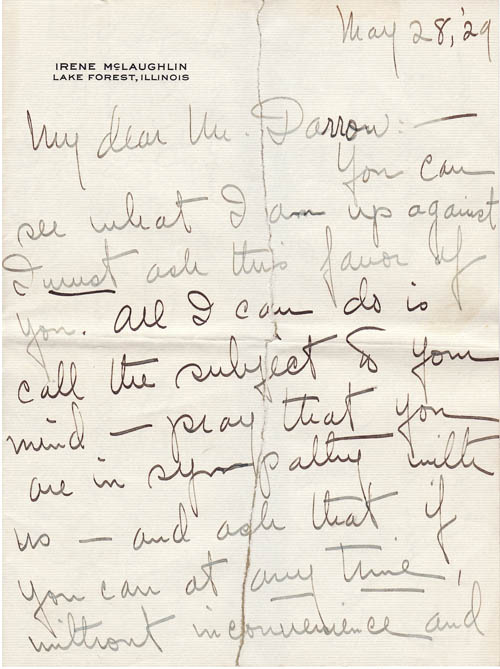 May 28, '29
IRENE McLAUGHLIN
LAKE FOREST, ILLINOIS
My dear Mr. Darrow: —
You can
see what I am up against
I must ask this favor of
you. All I can do is
call the subject to your
mind — pray that you
are in sympathy with
us — and ask that if
you can at any time,
without inconvenience and